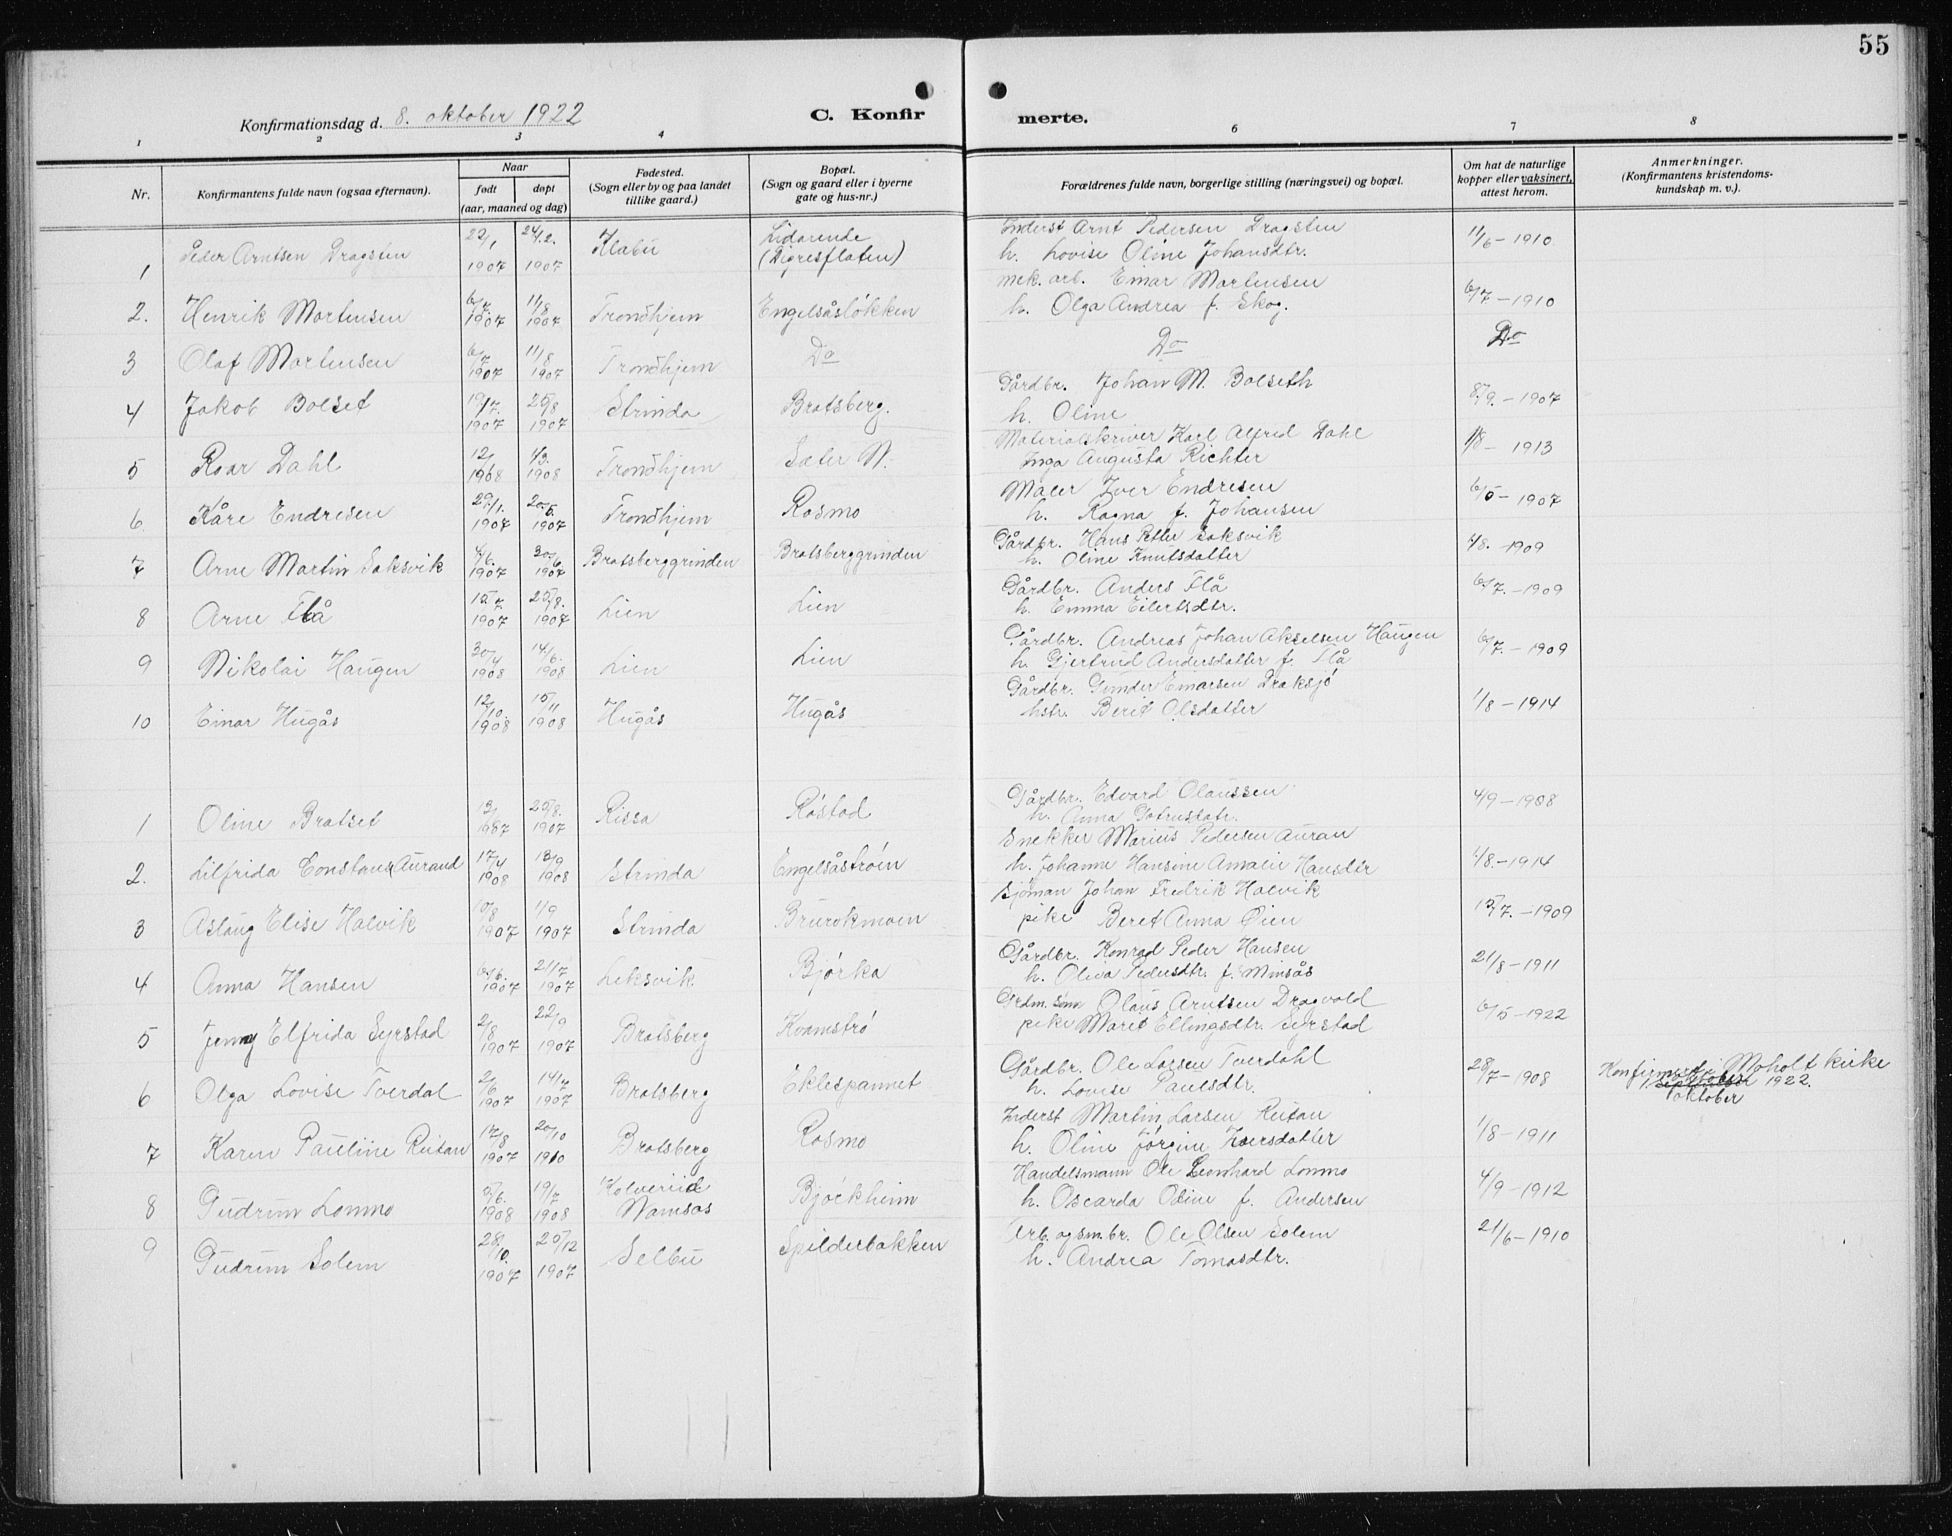 55
Konfirmationsdag d. 8. oktober 1922 C. Konfirmerte.
1 2 3 4 5 6 7 8
Nr. Konfirmantens fulde navn (ogsaa efternavn). Naar født døpt (aar, maaned og dag) Fødested. (Sogn eller by og paa landet tillike gaard.) Bopæl. (Sogn og gaard eller i byerne gate og hus-nr.) Forældrenes fulde navn, borgerlige stilling (næringsvei) og bopæl. Om hat de naturlige kopper eller vaksinert, attest herom. Anmerkninger. (Konfirmantens kristendomskundskap m. v.).
1 Peder Arntsen Dragsten 22/1 1907 24/2. 1907 Klæbu Lidarende (Digresflaten) Inderst Arnt Pedersen Dragsten h. Lovise Oline Johansdtr. 11/6 - 1910
2. Henrik Mortensen 6/7. 1907 11/8 1907 Trondhjem Engelsåsløkken mek. arb. Einar Mortensen h. Olga Andrea f. Skog. 6/7 - 1910
3 Olaf Mortensen 6/7 1907 11/8 1907 Trondhjem Do Do Do
4 Jakob Bolset 19/7. 1907 25/8 1907 Strinda Bratsberg. Gårdbr. Johan M. Bolseth h. Oline 8/9. - 1907
5 Roar Dahl 1908 4/3. 1908 Trondhjem Sæter N. Materialskriver Karl Alfred Dahl Inga Augusta Richter 1/8 - 1913
6 Kåre Endresen 29/1. 1907 20/5. 1907 Trondhjem Rosmo Maler Iver Endresen h. Ragna f. Johansen 6/5 - 1907
7 Arne Martin Saksvik 4/6. 1907 30/6 1907 Bratsberggrinden Bratsberggrinden Gårdbr. Hans Petter Saksvik h. Oline Knutsdatter 4/8. - 1909
8 Arne Flå 15/7. 1907 25/8. 1907 Lien Lien Gårdbr. Anders Flå h. Emma Eilertsdtr. 6/7. - 1909
9 Nikolai Haugen 30/4 1908 14/6. 1908 Lien Lien Gårdbr. Andreas Johan Akselsen Haugen h. Gjertrud Andersdatter f. Flå 6/7. - 1909
10 Einar Hugås 12/10. 1908 15/11 1908 Hugås Hugås Gårdbr. Gunder Einarsen Draksjø hstr. Berit Olsdatter 1/8 - 1914
1 Oline Bratset 1907 25/8. 1907 Rissa Røstad Gårdbr. Edvard Olaussen h. Anna 4/9 - 1908
2. Lilfrida Constanse Aurand 17/4 1908 13/9 1908 Strinda Engelsåstrøen Snekker Marius Pedersen Auran h. Johanne Hansine Amalie Hansdtr 1/8 - 1914
3 Aslaug Elise Halvik 10/8 1907 1/9 1907 Strinda Brurokmoen Sjöman Johan Fredrik Halvik pike Beret Anna Øien 15/7. - 1909
4 Anna Hansen 6/6. 1907 21/7 1907 Leksvik Bjørka Gårdbr. Konrad Peder Hansen h. Oliva Pedersdtr. f. Minsås 21/8 - 1911
5 Jenny Elfrida Syrstad 2/8 1907 22/9 1907 Bratsberg Kvamstrø Grdm. søn Olaus Arntsen Dragvold pike Marit Ellingsdtr. Syrstad 6/5 - 1922
6 Olga Lovise Tverdal 2/6 1907 14/7 1907 Bratsberg Eklespannet Gårdbr. Ole Larsen Tverdahl h. Lovise Paulsdtr. 28/7 - 1908 Konfirmert i Moholt kirke 1. september 1922. oktober
7 Karen Pauline Reitan 12/8 1907 20/10 1910 Bratsberg Rosmo Inderst Martin Larsen Reitan h. Oline Jørgine Iversdatter 1/8 - 1911
8 Gudrun Lonmo 5/6. 1908 19/7 1908 Kolvereid Namsos Bjørkheim Handelsmann Ole Leonhard Lonmo h. Oscarda Odine f. Andersen 4/9 - 1912
9 Gudrun Solem 28/10. 1907 25/12 1907 Selbu Spilderbakken Arb. og sm.br. Ole Olsen Solem h. Andrea Tomasdtr. 21/6 - 1910